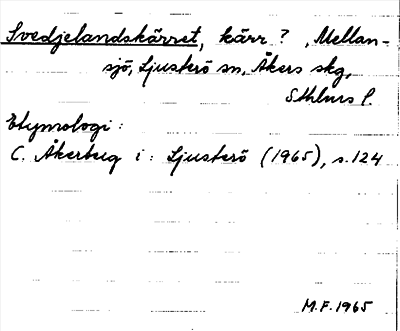 Svedjelandskärret, kärr ? , Mellan-
sjö, Ljusterö sn, Åkers skg,
Sthlms l.
Etymologi :
C. Åkerberg i : Ljusterö (1965), s. 124
M.F. 1965